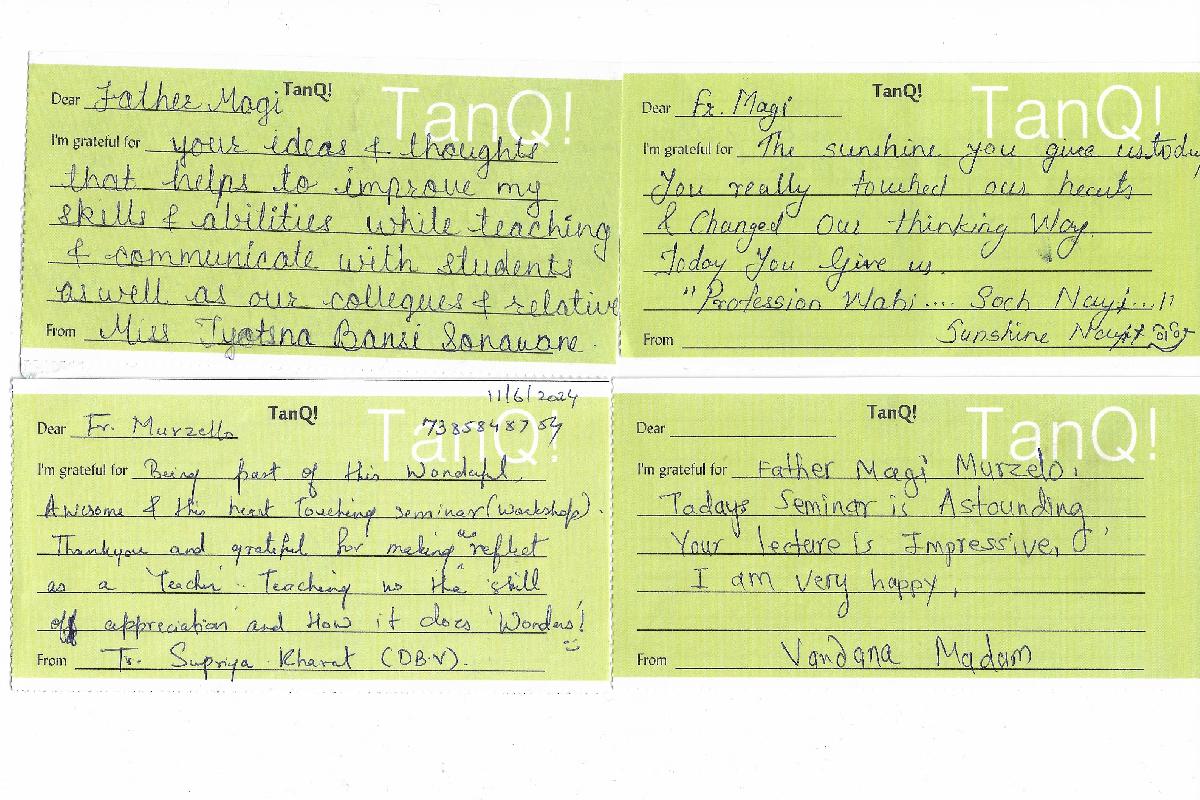 TanQ!
TanQ!
Dear Father Magi
I'm grateful for your ideas & thoughts
that helps to improve my
skills & abilities while teaching
& communicate with students
as well as our collegues & relative
From Miss Jyotsna Bansi Sonawane.
TanQ!
TanQ!
Dear Fr. Magi
I'm grateful for The sunshine you give us today
You really touched our hearts
& Changed Our thinking Way.
Today You Give us.
"Profession Wahi.... Soch Nayi...!!
From Sunshine
11/6/2024
TanQ!
TanQ!
Dear Fr. Murzello
7385848754
I'm grateful for Being part of this Wonderful
Awesome & this heart Touching seminar (Workshop).
Thankyou and grateful for making us "reflect
as a 'Teacher'. Teaching us the skill
of appreciation and How it does 'Wonders!
From Tr. Supriya Kharat (DBV).
TanQ!
TanQ!
Dear
I'm grateful for Father Magi Murzelo,
Todays Seminar is Astounding
Your lecture is Impressive,
I am very happy,
From Vandana Madam